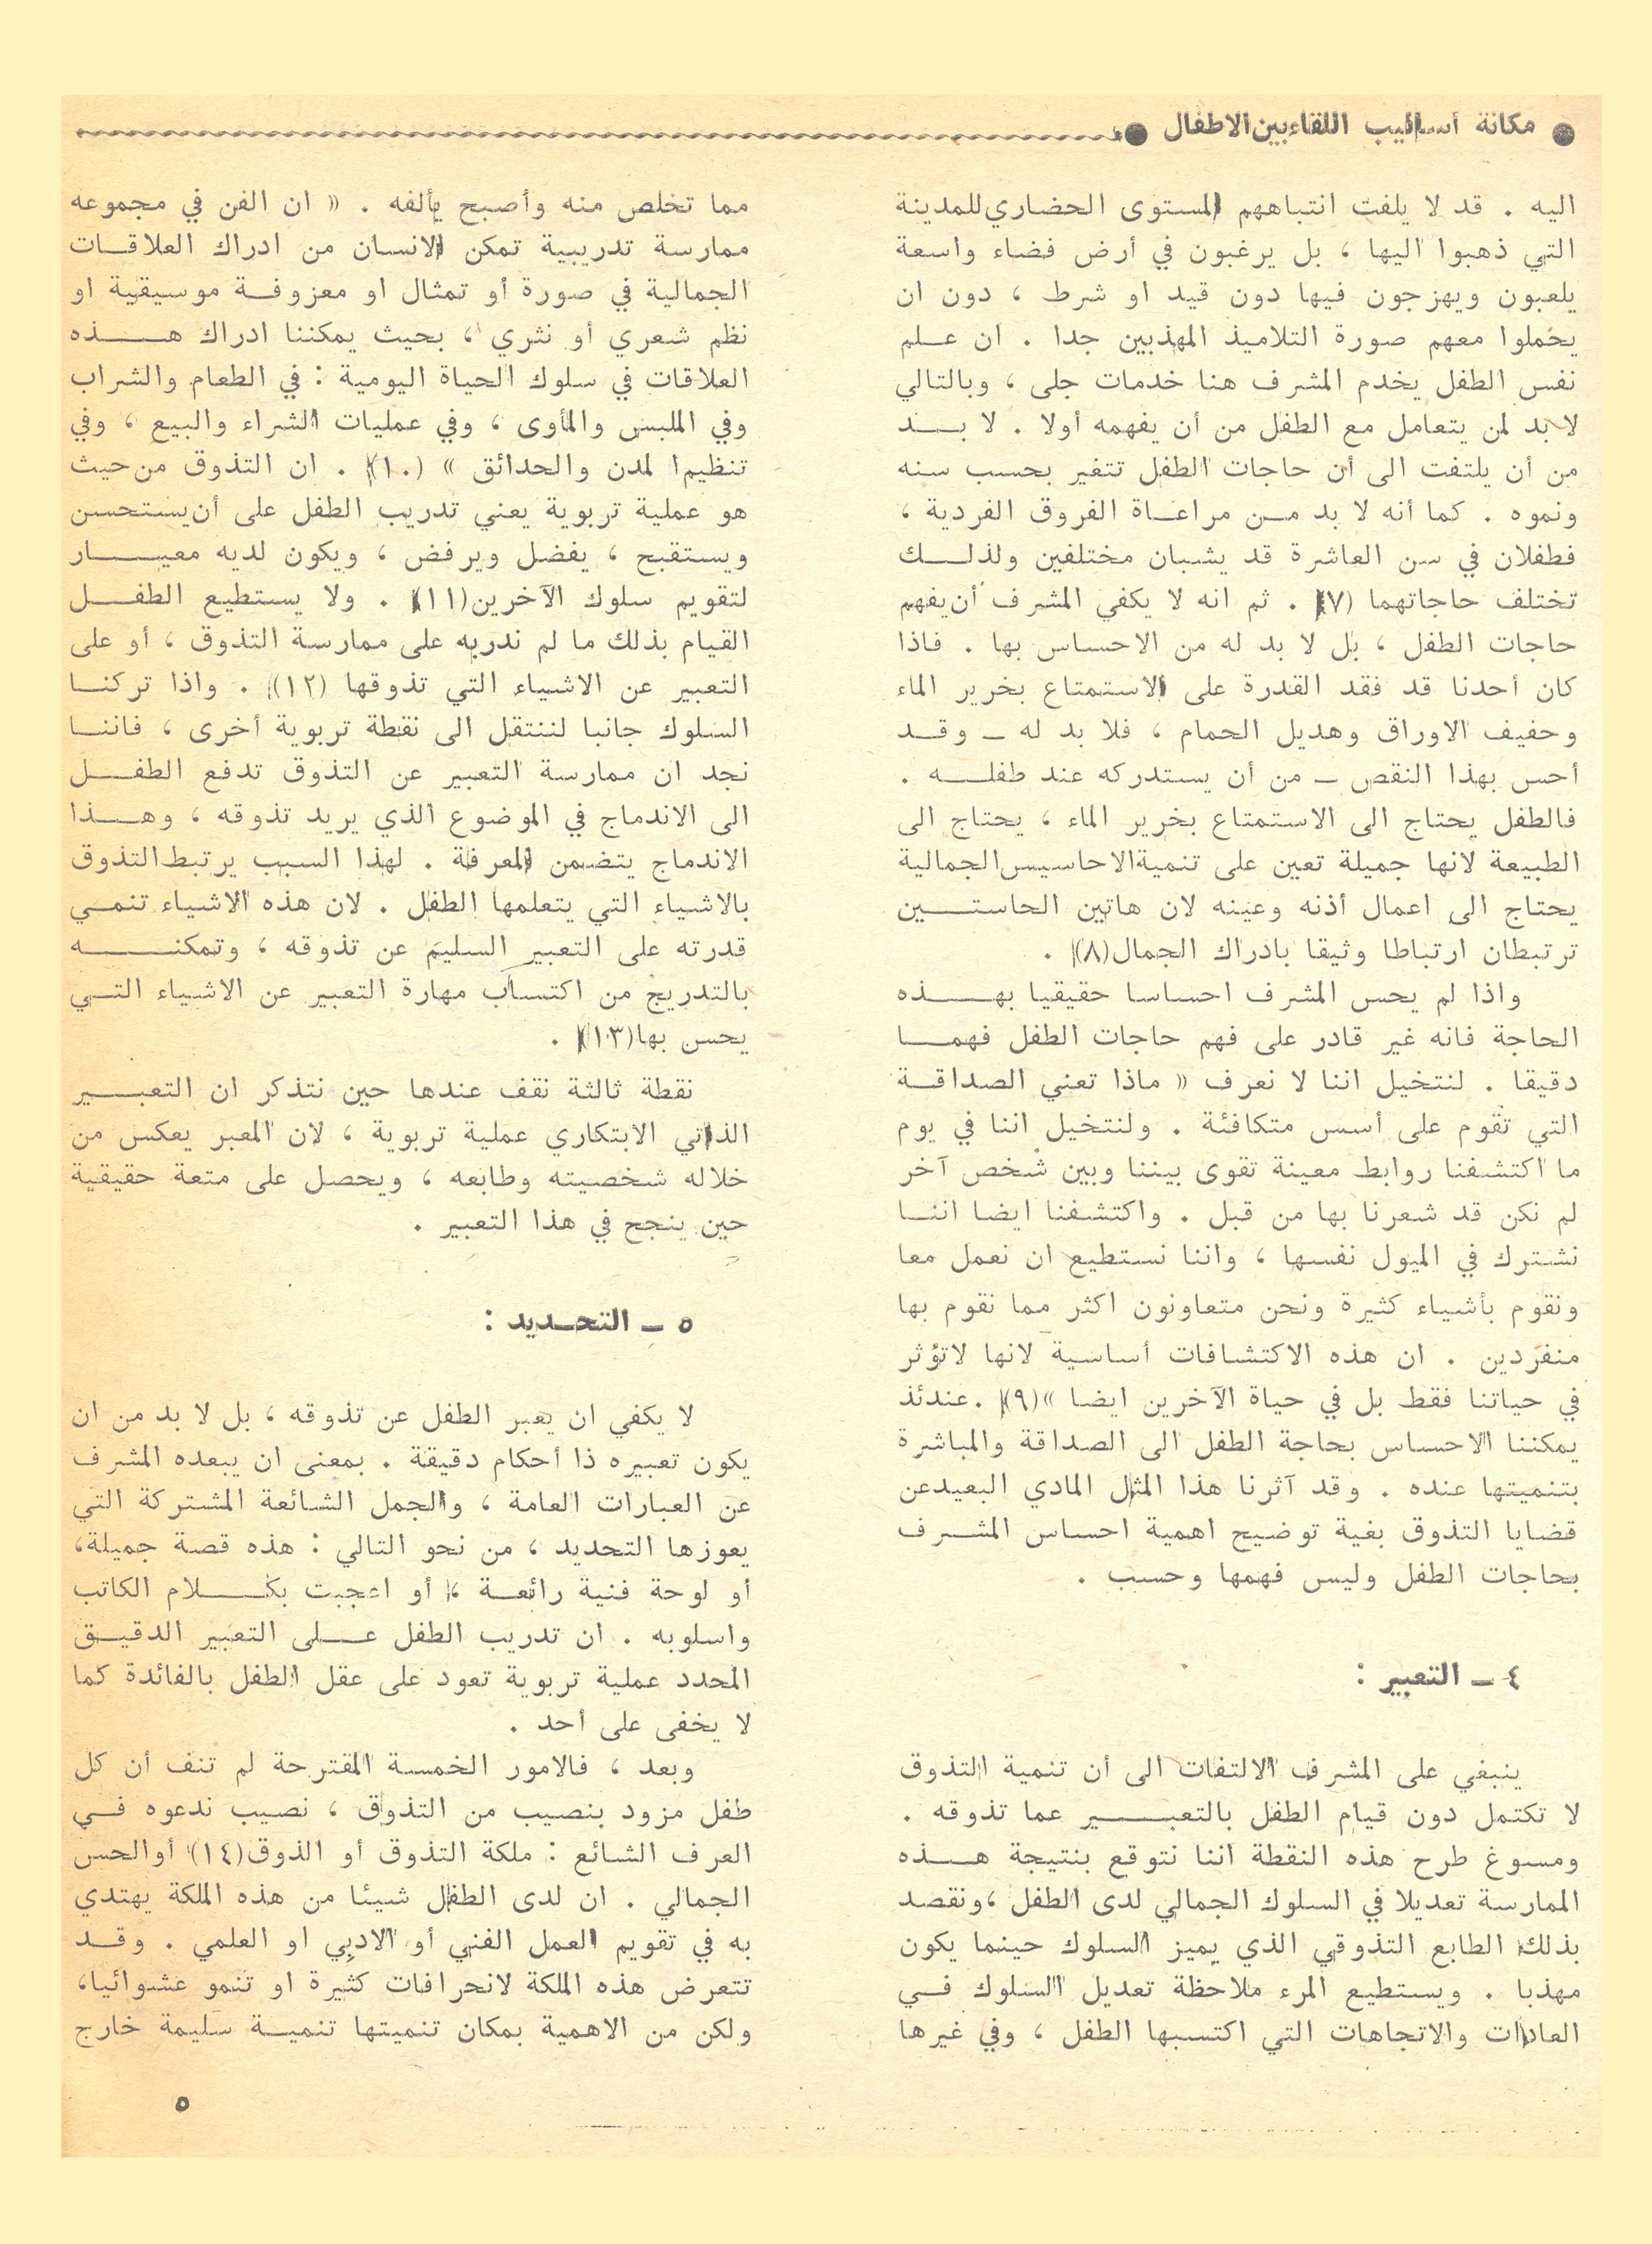 ● مكانة أساليب اللقاء بين الاطفال ●
اليه . قد لا يلفت انتباههم المستوى الحضاري للمدينة
التي ذهبوا اليها ، بل يرغبون في أرض فضاء واسعة
يلعبون ويهزجون فيها دون قيد او شرط ، دون ان
يحملوا معهم صورة التلاميذ المهذبين جدا . ان علم
نفس الطفل يخدم المشرف هنا خدمات جلى ، وبالتالي
لا بد لمن يتعامل مع الطفل من أن يفهمه أولا . لا بد
من أن يلتفت الى أن حاجات الطفل تتغير بحسب سنه
ونموه . كما أنه لا بد من مراعاة الفروق الفردية ،
فطفلان في سن العاشرة قد يشبان مختلفين ولذلك
تختلف حاجاتهما (٧) . ثم انه لا يكفي المشرف أن يفهم
حاجات الطفل ، بل لا بد له من الاحساس بها . فاذا
كان أحدنا قد فقد القدرة على الاستمتاع بخرير الماء
وحفيف الاوراق وهديل الحمام ، فلا بد له ـ وقد
أحس بهذا النقص ـ من أن يستدركه عند طفله .
فالطفل يحتاج الى الاستمتاع بخرير الماء ، يحتاج الى
الطبيعة لانها جميلة تعين على تنمية الاحاسيس الجمالية
يحتاج الى اعمال أذنه وعينه لان هاتين الحاستين
ترتبطان ارتباطا وثيقا بادراك الجمال(٨) .
واذا لم يحس المشرف احساسا حقيقيا بهذه
الحاجة فانه غير قادر على فهم حاجات الطفل فهما
دقيقا . لنتخيل اننا لا نعرف « ماذا تعني الصداقة
التي تقوم على أسس متكافئة . ولنتخيل اننا في يوم
ما اكتشفنا روابط معينة تقوى بيننا وبين شخص آخر
لم نكن قد شعرنا بها من قبل . واكتشفنا ايضا اننا
نشترك في الميول نفسها ، واننا نستطيع ان نعمل معا
ونقوم بأشياء كثيرة ونحن متعاونون اكثر مما نقوم بها
منفردين . ان هذه الاكتشافات أساسية لانها لاتؤثر
في حياتنا فقط بل في حياة الآخرين ايضا »(٩) . عندئذ
يمكننا الاحساس بحاجة الطفل الى الصداقة والمباشرة
بتنميتها عنده . وقد آثرنا هذا المثل المادي البعيد عن
قضايا التذوق بغية توضيح اهمية احساس المشرف
بحاجات الطفل وليس فهمها وحسب .
٤ ـ التعبير :
ينبغي على المشرف الالتفات الى أن تنمية التذوق
لا تكتمل دون قيام الطفل بالتعبير عما تذوقه .
ومسوغ طرح هذه النقطة اننا نتوقع بنتيجة هذه
الممارسة تعديلا في السلوك الجمالي لدى الطفل ، ونقصد
بذلك الطابع التذوقي الذي يميز السلوك حينما يكون
مهذبا . ويستطيع المرء ملاحظة تعديل السلوك في
العادات والاتجاهات التي اكتسبها الطفل ، وفي غيرها
مما تخلص منه وأصبح يألفه . « ان الفن في مجموعه
ممارسة تدريبية تمكن الانسان من ادراك العلاقات
الجمالية في صورة أو تمثال او معزوفة موسيقية او
نظم شعري أو نثري ، بحيث يمكننا ادراك هذه
العلاقات في سلوك الحياة اليومية : في الطعام والشراب
وفي الملبس والمأوى ، وفي عمليات الشراء والبيع ، وفي
تنظيم المدن والحدائق » (١٠) . ان التذوق من حيث
هو عملية تربوية يعني تدريب الطفل على أن يستحسن
ويستقبح ، يفضل ويرفض ، ويكون لديه معيار
لتقويم سلوك الآخرين(١١) . ولا يستطيع الطفل
القيام بذلك ما لم ندربه على ممارسة التذوق ، أو على
التعبير عن الاشياء التي تذوقها (١٢) . واذا تركنا
السلوك جانبا لننتقل الى نقطة تربوية أخرى ، فاننا
نجد ان ممارسة التعبير عن التذوق تدفع الطفل
الى الاندماج في الموضوع الذي يريد تذوقه ، وهذا
الاندماج يتضمن المعرفة . لهذا السبب يرتبط التذوق
بالاشياء التي يتعلمها الطفل . لان هذه الاشياء تنمي
قدرته على التعبير السليم عن تذوقه ، وتمكنه
بالتدريج من اكتساب مهارة التعبير عن الاشياء التي
يحسن بها(١٣) .
نقطة ثالثة نقف عندها حين نتذكر ان التعبير
الذاتي الابتكاري عملية تربوية ، لان المعبر يعكس من
خلاله شخصيته وطابعه ، ويحصل على متعة حقيقية
حين ينجح في هذا التعبير .
٥ ـ التحديد :
لا يكفي ان يعبر الطفل عن تذوقه ، بل لا بد من ان
يكون تعبيره ذا أحكام دقيقة . بمعنى ان يبعده المشرف
عن العبارات العامة ، والجمل الشائعة المشتركة التي
يعوزها التحديد ، من نحو التالي : هذه قصة جميلة،
أو لوحة فنية رائعة ، أو اعجبت بكلام الكاتب
واسلوبه . ان تدريب الطفل على التعبير الدقيق
المحدد عملية تربوية تعود على عقل الطفل بالفائدة كما
لا يخفى على أحد .
وبعد ، فالامور الخمسة المقترحة لم تنف أن كل
طفل مزود بنصيب من التذوق ، نصيب ندعوه في
العرف الشائع : ملكة التذوق أو الذوق(١٤) أو الحس
الجمالي . ان لدى الطفل شيئا من هذه الملكة يهتدي
به في تقويم العمل الفني أو الادبي او العلمي . وقد
تتعرض هذه الملكة لانحرافات كثيرة او تنمو عشوائيا،
ولكن من الاهمية بمكان تنميتها تنمية سليمة خارج
٥